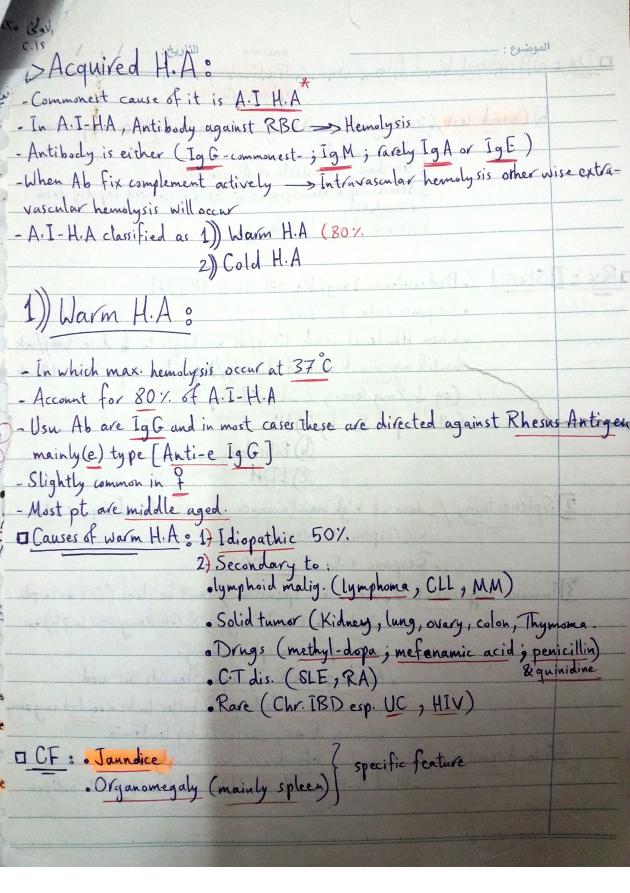 الموضوع :
التاريخ :
Acquired H.A :
- Commonest cause of it is A.I H.A *
- In A.I-HA, Antibody against RBC → Hemolysis
- Antibody is either (IgG-commonest-; IgM; rarely IgA or IgE)
- When Ab fix complement actively → Intravascular hemolysis other wise extra-
vascular hemolysis will occur
- A.I-H.A classified as 1)) Warm H.A (80%
2)) Cold H.A
1)) Warm H.A :
- In which max. hemolysis occur at 37°C
- Account for 80% of A.I-H.A
- Usu Ab are IgG and in most cases these are directed against Rhesus Antigen
mainly (e) type [Anti-e IgG]
- Slightly common in ♀
- Most pt are middle aged.
□ Causes of warm H.A : 1) Idiopathic 50%
2) Secondary to :
• lymphoid malig. (lymphoma, CLL, MM)
• Solid tumor (Kidney, lung, ovary, colon, Thymoma.
• Drugs (methyl-dopa; mefenamic acid; penicillin)
& quinidine
• C.T dis. (SLE, RA)
• Rare (Chr. IBD esp. UC, HIV)
□ CF : • Jaundice
• Organomegaly (mainly spleen) } specific feature